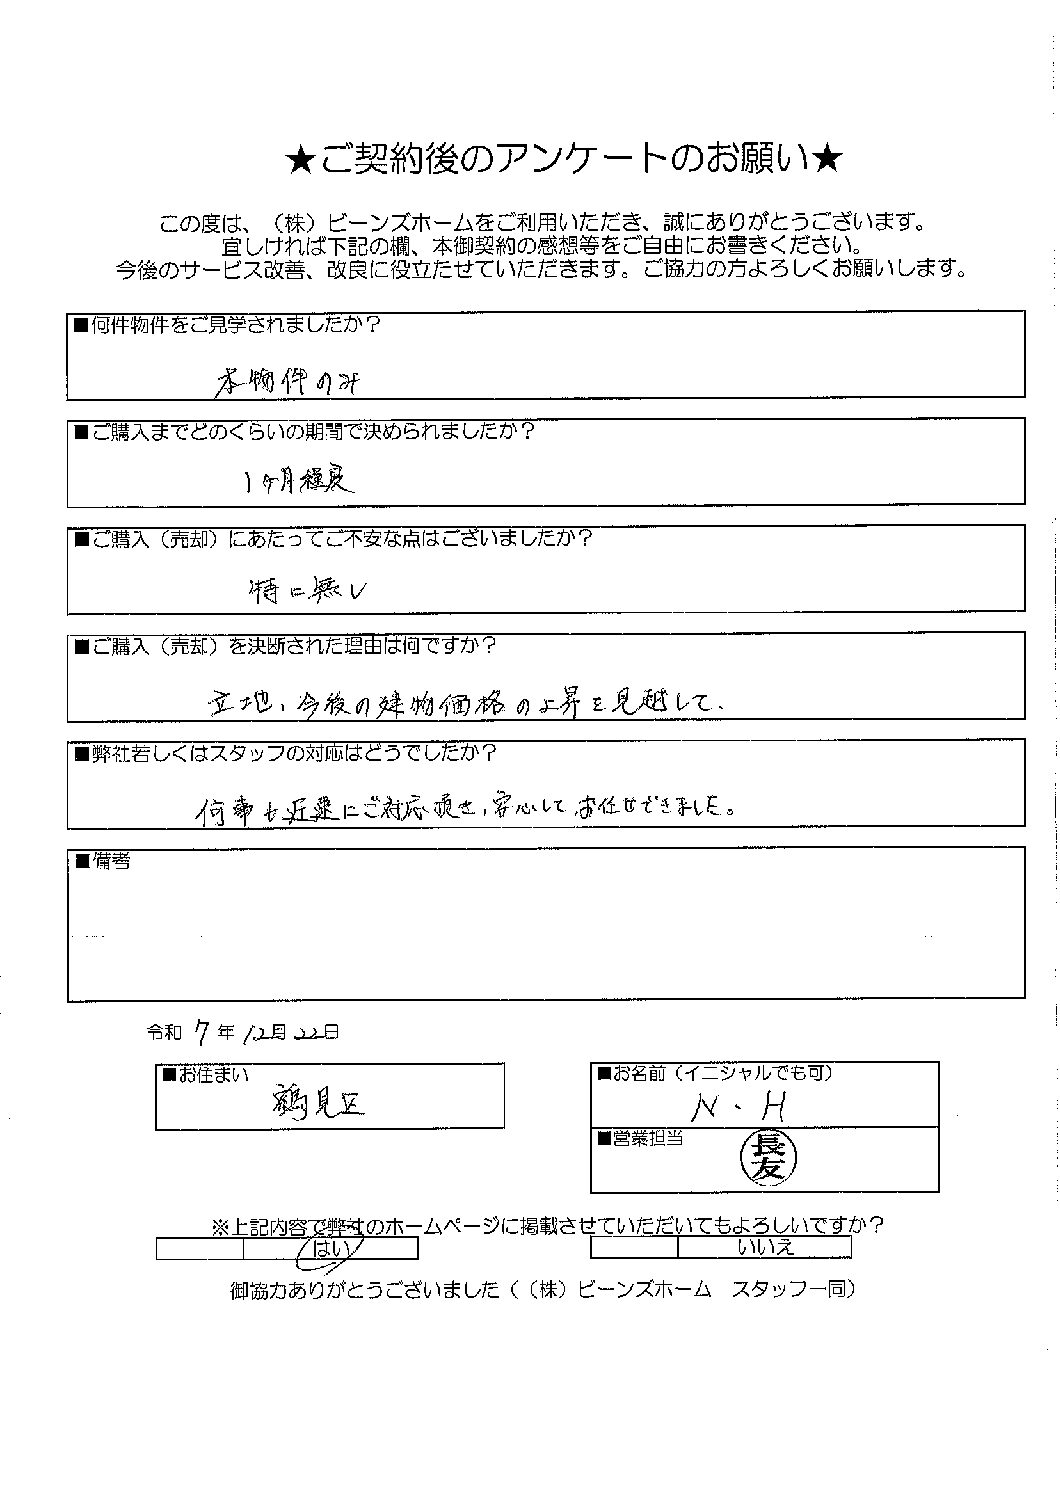 ★ご契約後のアンケートのお願い★
この度は、（株）ビーンズホームをご利用いただき、誠にありがとうございます。
宜しければ下記の欄、本御契約の感想等をご自由にお書きください。
今後のサービス改善、改良に役立たせていただきます。ご協力の方よろしくお願いします。
■何件物件をご見学されましたか？
本物件のみ
■ご購入までどのくらいの期間で決められましたか？
1ヶ月程度
■ご購入（売却）にあたってご不安な点はございましたか？
特に無し
■ご購入（売却）を決断された理由は何ですか？
立地、今後の建物価格の上昇を見越して、
■弊社若しくはスタッフの対応はどうでしたか？
何事も迅速にご対応頂き、安心してお任せできました。
■備考
令和 7 年 12月 22日
■お住まい
鶴見区
■お名前（イニシャルでも可）
N・H
■営業担当
長友
※上記内容で弊社のホームページに掲載させていただいてもよろしいですか？
はい いいえ
御協力ありがとうございました（（株）ビーンズホーム　スタッフ一同）